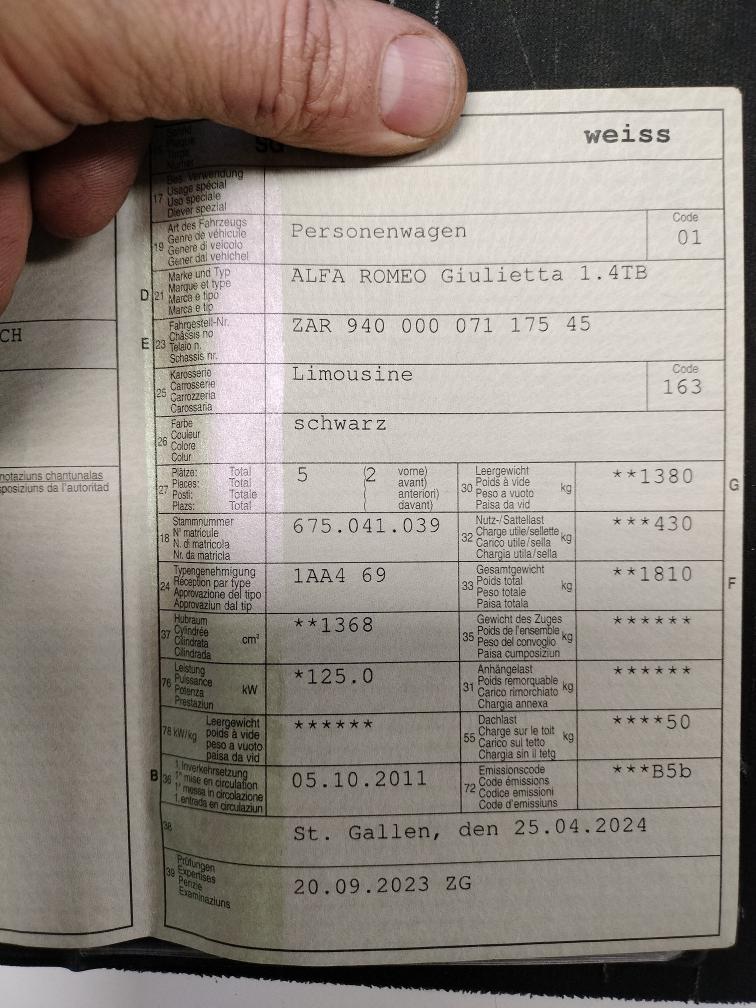 SG weiss
17 Bes. Verwendung
Usage spécial
Uso speciale
Diever spezial
19 Art des Fahrzeugs
Genre de véhicule
Genere di veicolo
Gener dal vehichel
Personenwagen
Code
01
D 21 Marke und Typ
Marque et type
Marca e tipo
Marca e tip
ALFA ROMEO Giulietta 1.4TB
CH
E 23 Fahrgestell-Nr.
Châssis no
Telaio n.
Schassis nr.
ZAR 940 000 071 175 45
25 Karosserie
Carrosserie
Carrozzeria
Carossaria
Limousine
Code
163
26 Farbe
Couleur
Colore
Colur
schwarz
notaziuns chantunalas
sposiziuns da l'autoritad
27 Plätze: Total
Places: Total
Posti: Totale
Plazs: Total
5 (2 vorne)
avant)
anteriori)
davant)
30 Leergewicht
Poids à vide
Peso a vuoto
Paisa da vid
kg
**1380 G
18 Stammnummer
N° matricule
N. di matricola
Nr. da matricla
675.041.039
32 Nutz-/Sattellast
Charge utile/sellette
Carico utile/sella
Chargia utila/sella
kg
***430
24 Typengenehmigung
Réception par type
Approvazione del tipo
Approvaziun dal tip
1AA4 69
33 Gesamtgewicht
Poids total
Peso totale
Paisa totala
kg
**1810 F
37 Hubraum
Cylindrée
Cilindrata
Cilindrada
cm³
**1368
35 Gewicht des Zuges
Poids de l'ensemble
Peso del convoglio
Paisa cumposiziun
kg
******
76 Leistung
Puissance
Potenza
Prestaziun
kW
*125.0
31 Anhängelast
Poids remorquable
Carico rimorchiato
Chargia annexa
kg
******
78 kW/kg Leergewicht
poids à vide
peso a vuoto
paisa da vid
******
55 Dachlast
Charge sur le toit
Carico sul tetto
Chargia sin il tetg
kg
****50
B 36 1. Inverkehrsetzung
1re mise en circulation
1a messa in circolazione
1. entrada en circulaziun
05.10.2011
72 Emissionscode
Code émissions
Codice emissioni
Code d'emissiuns
***B5b
38
St. Gallen, den 25.04.2024
39 Prüfungen
Expertises
Perizie
Examinaziuns
20.09.2023 ZG